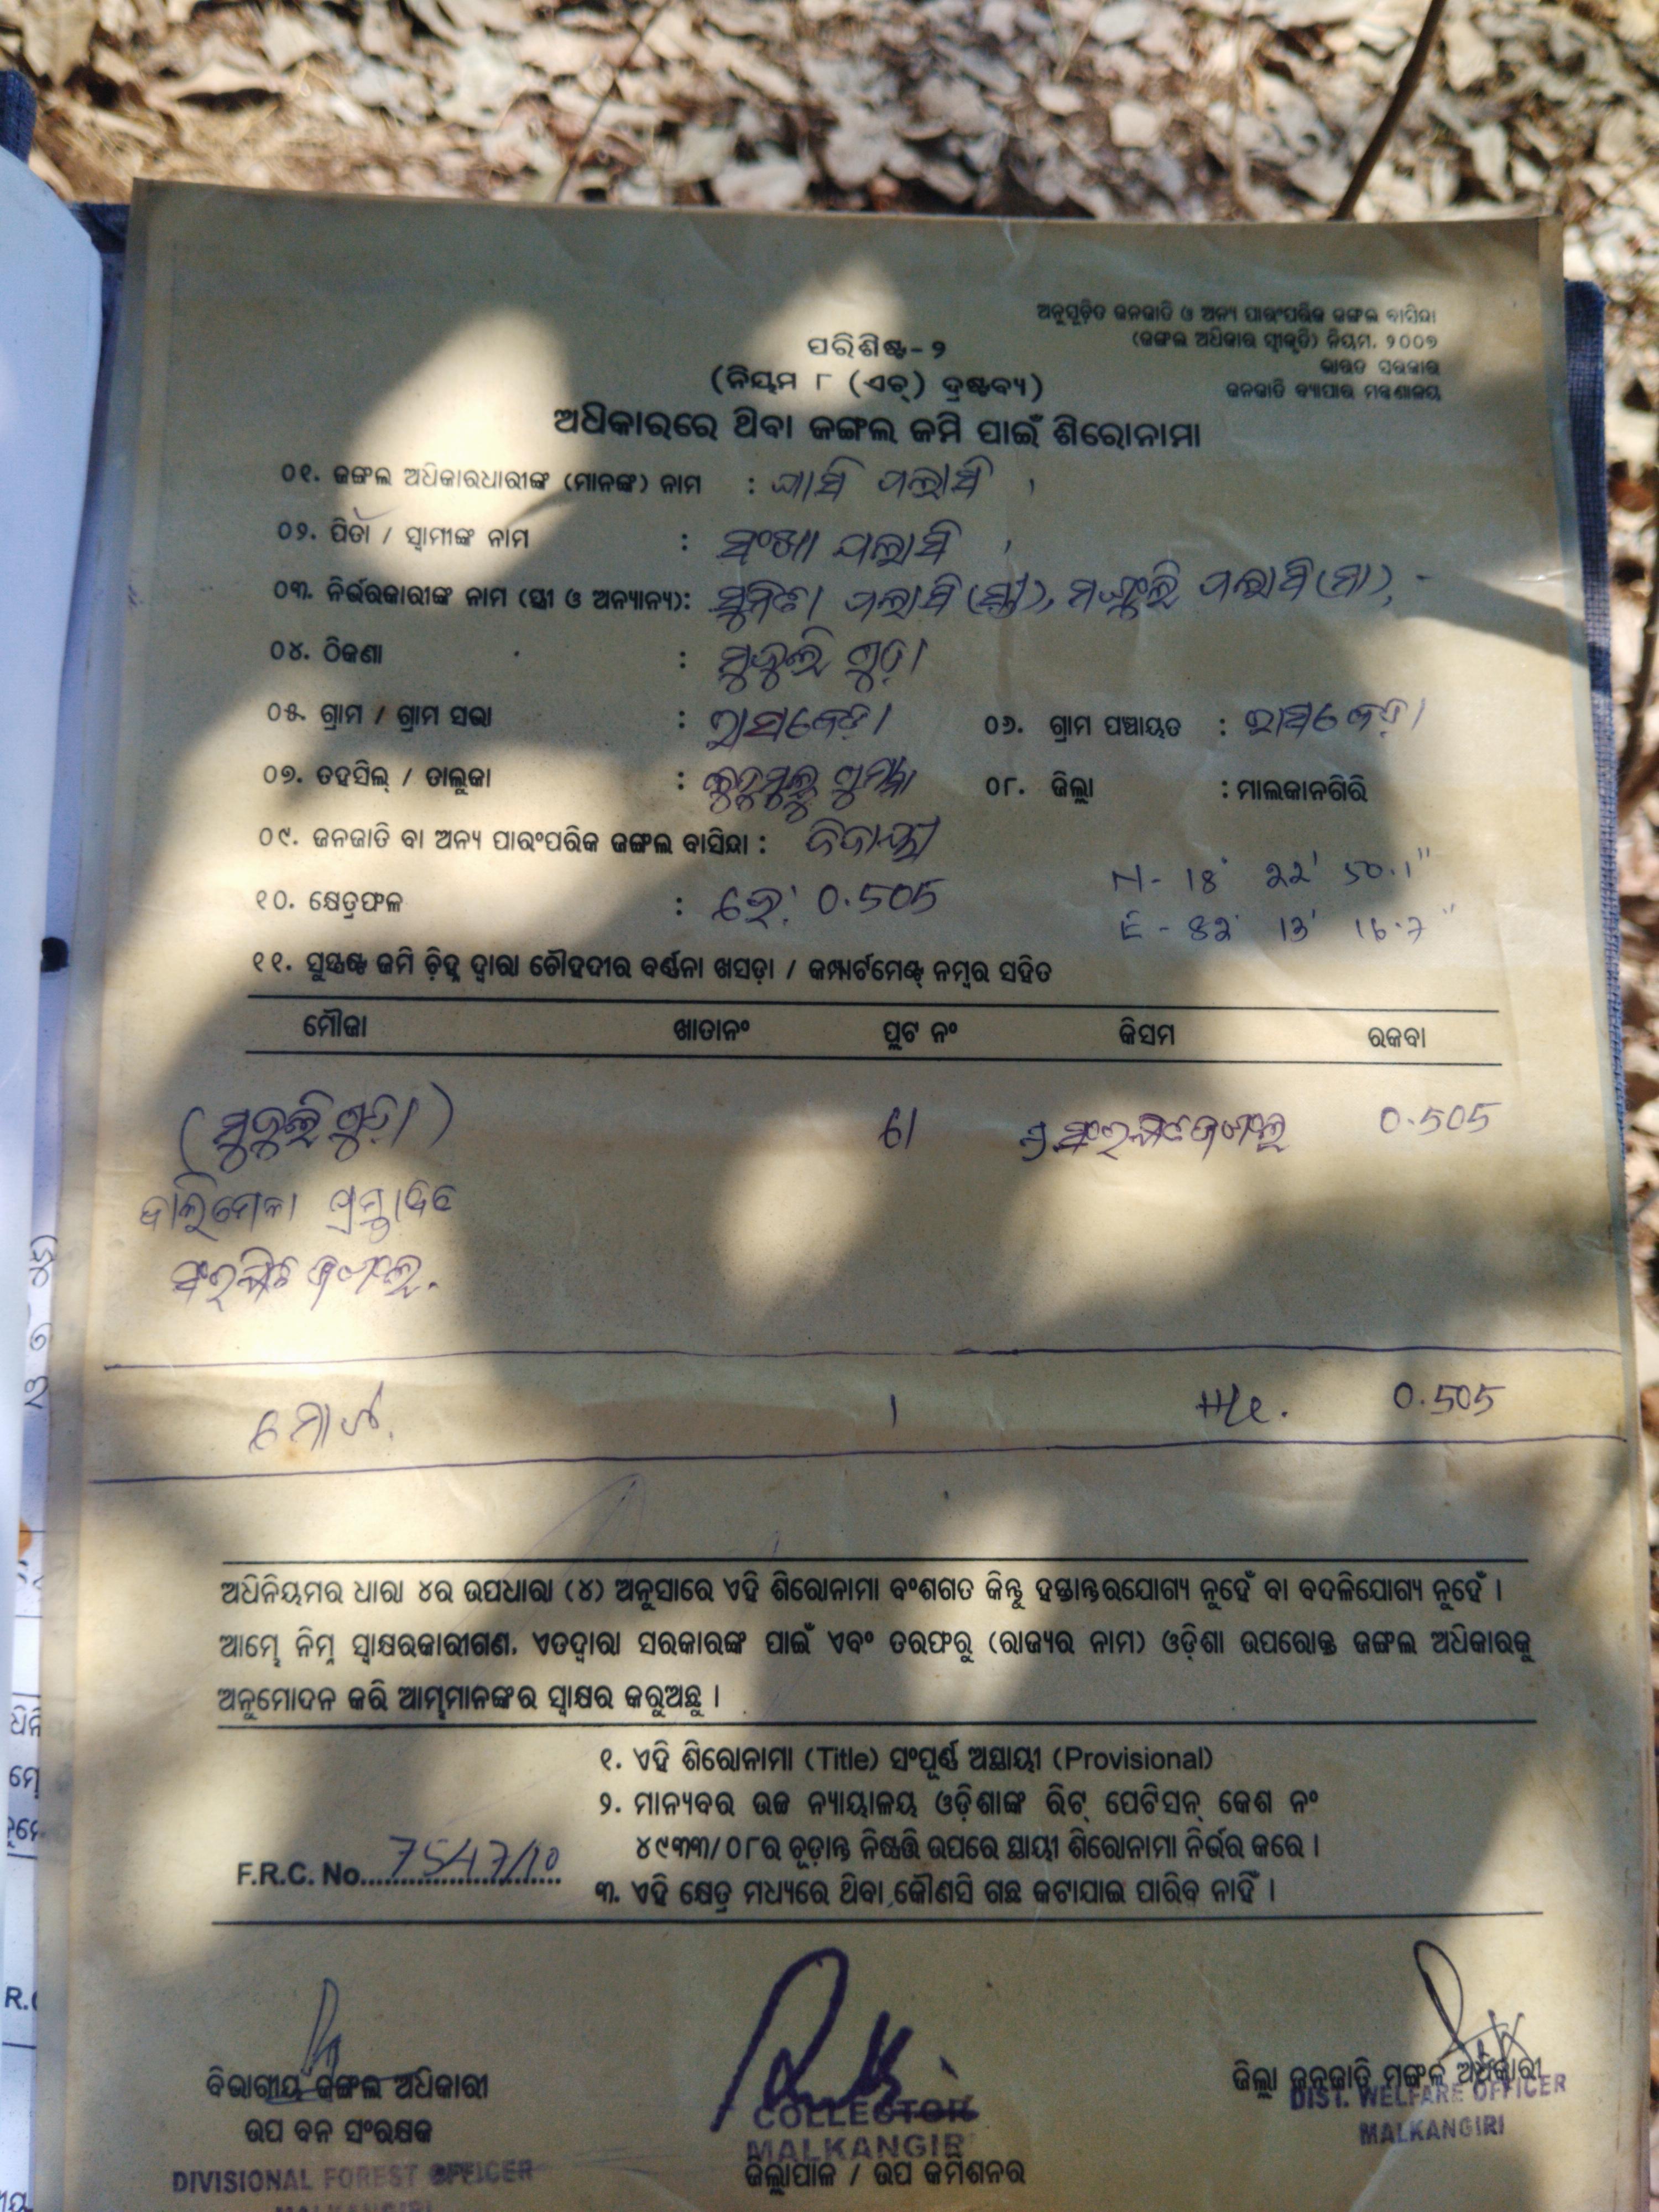 ଅନୁସୂଚିତ ଜନଜାତି ଓ ଅନ୍ୟ ପାରଂପରିକ ଜଙ୍ଗଲ ବାସିନ୍ଦା
(ଜଙ୍ଗଲ ଅଧିକାର ସ୍ୱୀକୃତି) ନିୟମ, ୨୦୦୭
ଭାରତ ସରକାର
ଜନଜାତି ବ୍ୟାପାର ମନ୍ତ୍ରଣାଳୟ
ପରିଶିଷ୍ଟ-୨
(ନିୟମ ୮ (ଏଚ୍) ଦ୍ରଷ୍ଟବ୍ୟ)
ଅଧିକାରରେ ଥିବା ଜଙ୍ଗଲ ଜମି ପାଇଁ ଶିରୋନାମା
୦୧. ଜଙ୍ଗଲ ଅଧିକାରଧାରୀଙ୍କ (ମାନଙ୍କ) ନାମ :
୦୨. ପିତା / ସ୍ୱାମୀଙ୍କ ନାମ :
୦୩. ନିର୍ଭରକାରୀଙ୍କ ନାମ (ସ୍ତ୍ରୀ ଓ ଅନ୍ୟାନ୍ୟ):
୦୪. ଠିକଣା : ମୁଦୁଲି ଗୁଡ଼ା
୦୫. ଗ୍ରାମ / ଗ୍ରାମ ସଭା : ରାସବେଡ଼ା ୦୬. ଗ୍ରାମ ପଞ୍ଚାୟତ : ରାସବେଡ଼ା
୦୭. ତହସିଲ୍ / ତାଲୁକା : କୁଡୁମୁଲୁ ଗୁମ୍ମା ୦୮. ଜିଲ୍ଲା : ମାଲକାନଗିରି
୦୯. ଜନଜାତି ବା ଅନ୍ୟ ପାରଂପରିକ ଜଙ୍ଗଲ ବାସିନ୍ଦା :
୧୦. କ୍ଷେତ୍ରଫଳ : ହେ: 0.505
N- 18° 22' 50.1"
E- 82° 13' 16.7"
୧୧. ସୁସ୍ପଷ୍ଟ ଜମି ଚିହ୍ନ ଦ୍ୱାରା ଚୌହଦୀର ବର୍ଣ୍ଣନା ଖସଡ଼ା / କମ୍ପାର୍ଟମେଣ୍ଟ୍ ନମ୍ବର ସହିତ
ମୌଜା ଖାତାନଂ ପ୍ଲଟ ନଂ କିସମ ରକବା
(ମୁଦୁଲି ଗୁଡ଼ା) 61 ପ୍ର.ସଂରକ୍ଷିତ ଜଙ୍ଗଲ 0.505
ବାଲିମେଳା ପ୍ରସ୍ତାବିତ
ସଂରକ୍ଷିତ ଜଙ୍ଗଲ.
ମୋଟ. 1 He. 0.505
ଅଧିନିୟମର ଧାରା ୪ର ଉପଧାରା (୪) ଅନୁସାରେ ଏହି ଶିରୋନାମା ବଂଶଗତ କିନ୍ତୁ ହସ୍ତାନ୍ତରଯୋଗ୍ୟ ନୁହେଁ ବା ବଦଳିଯୋଗ୍ୟ ନୁହେଁ ।
ଆମ୍ଭେ ନିମ୍ନ ସ୍ୱାକ୍ଷରକାରୀଗଣ, ଏତଦ୍ୱାରା ସରକାରଙ୍କ ପାଇଁ ଏବଂ ତରଫରୁ (ରାଜ୍ୟର ନାମ) ଓଡ଼ିଶା ଉପରୋକ୍ତ ଜଙ୍ଗଲ ଅଧିକାରକୁ
ଅନୁମୋଦନ କରି ଆମ୍ଭମାନଙ୍କର ସ୍ୱାକ୍ଷର କରୁଅଛୁ ।
୧. ଏହି ଶିରୋନାମା (Title) ସଂପୂର୍ଣ୍ଣ ଅସ୍ଥାୟୀ (Provisional)
୨. ମାନ୍ୟବର ଉଚ୍ଚ ନ୍ୟାୟାଳୟ ଓଡ଼ିଶାଙ୍କ ରିଟ୍ ପେଟିସନ୍ କେଶ ନଂ
୪୯୩୩/୦୮ର ଚୂଡ଼ାନ୍ତ ନିଷ୍ପତ୍ତି ଉପରେ ସ୍ଥାୟୀ ଶିରୋନାମା ନିର୍ଭର କରେ ।
F.R.C. No. 7547/10
୩. ଏହି କ୍ଷେତ୍ର ମଧ୍ୟରେ ଥିବା କୌଣସି ଗଛ କଟାଯାଇ ପାରିବ ନାହିଁ ।
ବିଭାଗୀୟ ଜଙ୍ଗଲ ଅଧିକାରୀ
ଉପ ବନ ସଂରକ୍ଷକ
DIVISIONAL FOREST OFFICER
MALKANGIRI
COLLECTOR
MALKANGIRI
ଜିଲ୍ଲାପାଳ / ଉପ କମିଶନର
ଜିଲ୍ଲା ଜନଜାତି ମଙ୍ଗଳ ଅଧିକାରୀ
DIST. WELFARE OFFICER
MALKANGIRI